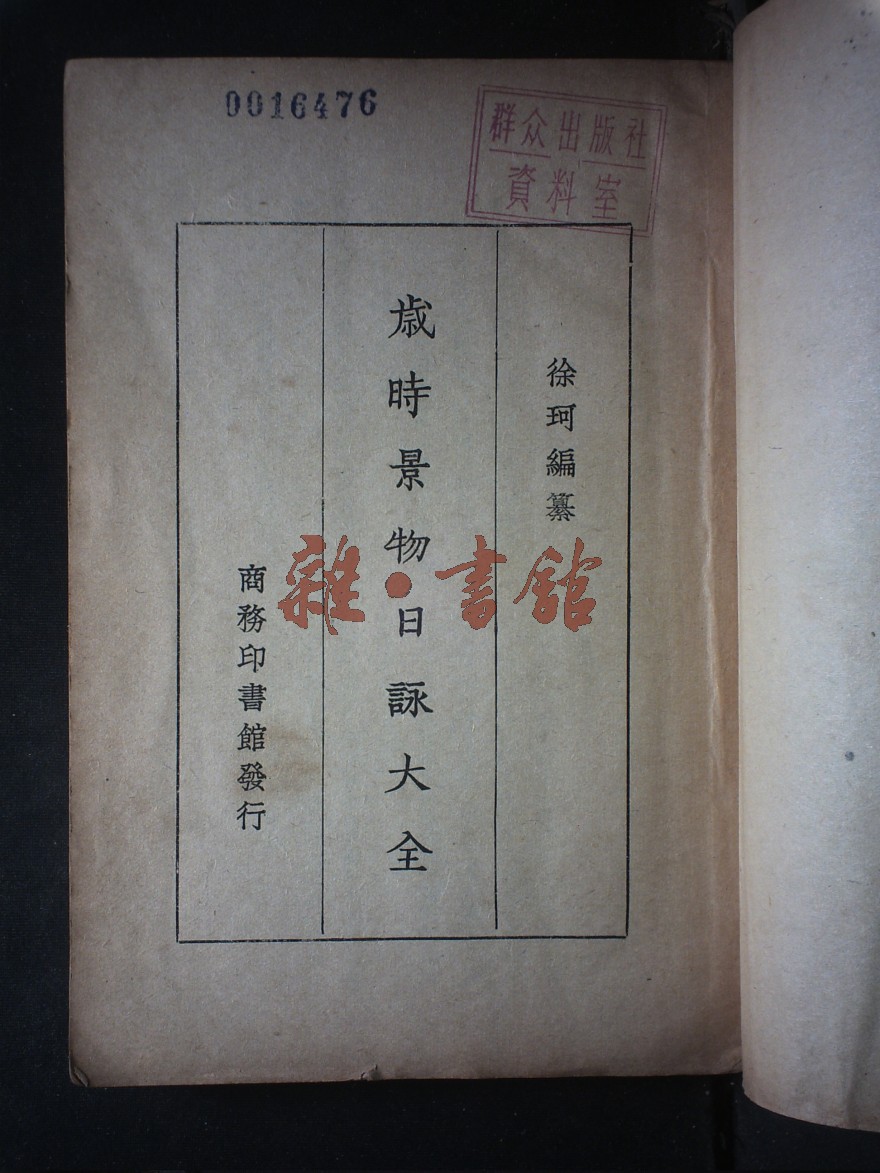 0016476
群众出版社
資料室
徐珂編纂
歳時景物日詠大全
商務印書館發行
雜·書館